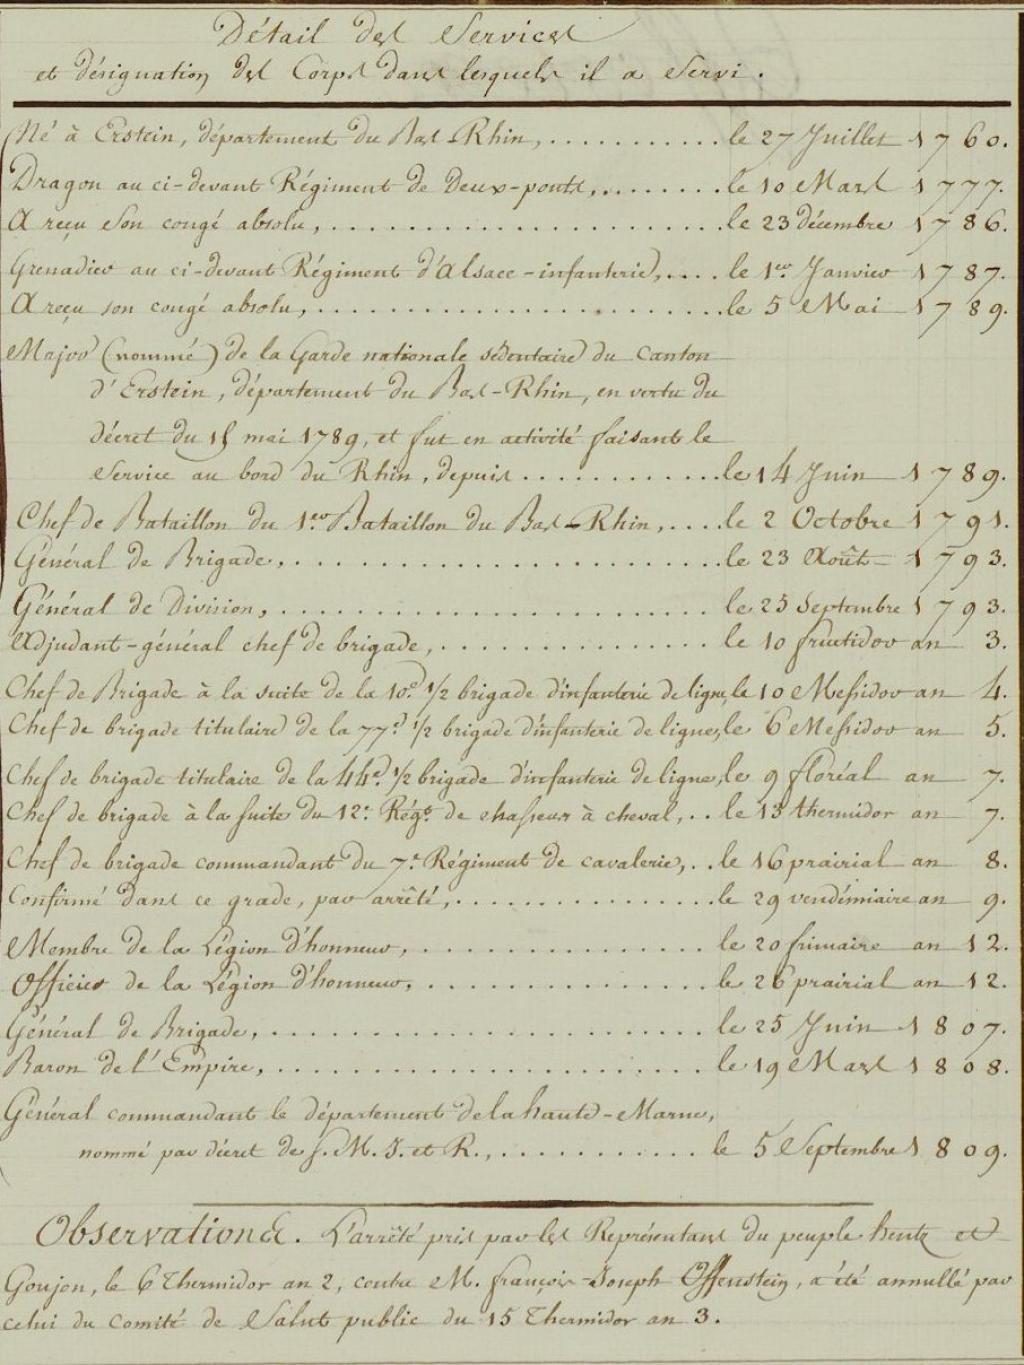 Détail des Services
et désignation des Corps dans lesquels il a Servi.
Né à Erstein, département du Bas-Rhin, ........... le 27 Juillet 1760.
Dragon au ci-devant Régiment de Deux-ponts, ........ le 10 Mars 1777.
A reçu son congé absolu, ....................... le 23 décembre 1786.
Grenadier au ci-devant Régiment d'alsace-infanterie, .... le 1er Janvier 1787.
A reçu son congé absolu, ........................ le 5 Mai 1789.
Major (nommé) de la Garde nationale sédentaire du Canton
d'Erstein, département du Bas-Rhin, en vertu du
décret du 15 mai 1789, et fut en activité faisant le
Service au bord du Rhin, depuis ............ le 14 Juin 1789.
Chef de Bataillon du 1er Bataillon du Bas-Rhin, .... le 2 Octobre 1791.
Général de Brigade, ......................... le 23 Août 1793.
Général de Division, ......................... le 25 Septembre 1793.
Adjudant-général chef de brigade, ............... le 10 fructidor an 3.
Chef de Brigade à la suite de la 10e 1/2 brigade d'infanterie de ligne, le 10 Messidor an 4.
Chef de brigade titulaire de la 77e 1/2 brigade d'infanterie de ligne, le 6 Messidor an 5.
Chef de brigade titulaire de la 44e 1/2 brigade d'infanterie de ligne, le 9 floréal an 7.
Chef de brigade à la suite du 12e Régt de chasseurs à cheval, .. le 13 thermidor an 7.
Chef de brigade commandant du 7e Régiment de cavalerie, .. le 16 prairial an 8.
Confirmé dans ce grade, par arrêté, ............... le 29 vendémiaire an 9.
Membre de la Légion d'honneur, ................. le 20 frimaire an 12.
Officier de la Légion d'honneur, ................ le 26 prairial an 12.
Général de Brigade, .......................... le 25 Juin 1807.
Baron de l'Empire, .......................... le 19 Mars 1808.
Général commandant le département de la haute-Marne,
nommé par décret de S. M. I. et R., ........... le 5 Septembre 1809.
Observations. L'arrêté pris par les Représentans du peuple hentz et
Goujon, le 6 Thermidor an 2, contre M. françois-Joseph Offenstein, a été annullé par
celui du comité de Salut public du 15 Thermidor an 3.